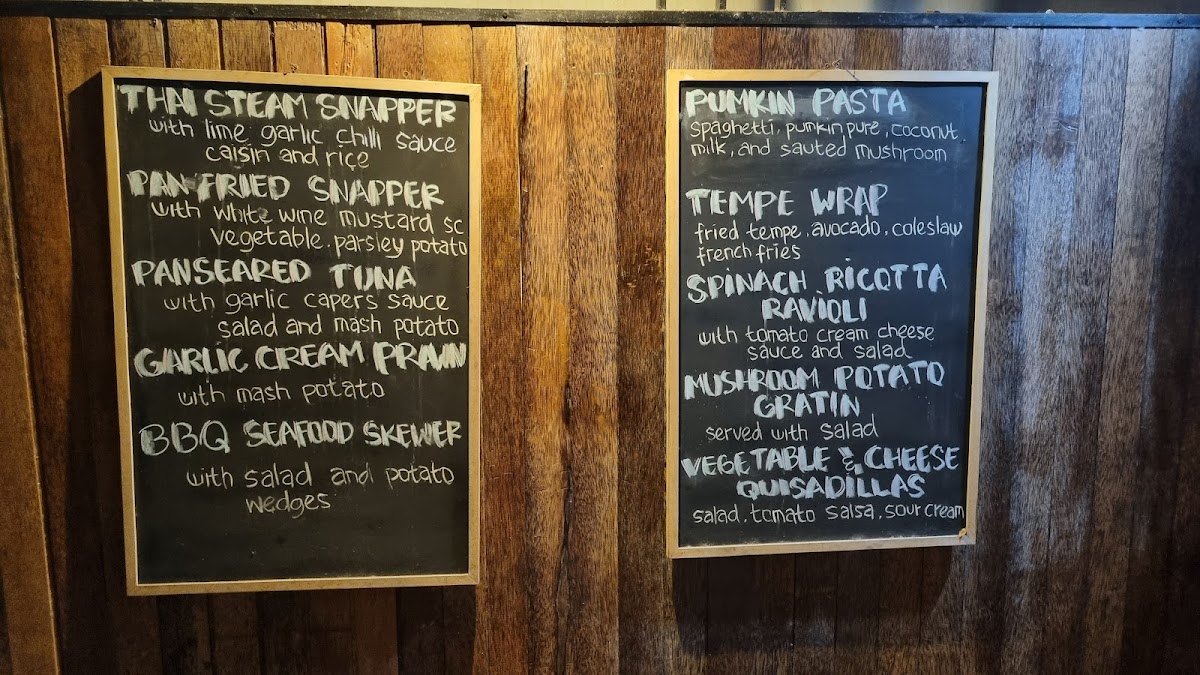 THAI STEAM SNAPPER
with lime garlic chill sauce
caisin and rice
PAN FRIED SNAPPER
with white wine mustard sc
vegetable. parsley potato
PANSEARED TUNA
with garlic capers sauce
salad and mash potato
GARLIC CREAM PRAWN
with mash potato
BBQ SEAFOOD SKEWER
with salad and potato
wedges
PUMKIN PASTA
spaghetti, pumkin pure, coconut.
milk, and sauted mushroom
TEMPE WRAP
fried tempe. avocado. coleslaw
french fries
SPINACH RICOTTA
RAVIOLI
with tomato cream cheese
sauce and salad
MUSHROOM POTATO
GRATIN
served with salad
VEGETABLE & CHEESE
QUISADILLAS
salad. tomato salsa. sour cream